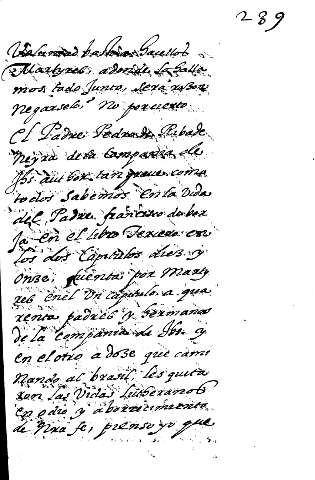 289
Voluntad bastan hacellos
Martyres, adonde lo halla
mos todo junto, sera razon
negarselo? No por cierto
El Padre Pedro de Ribade
neyra de la Compania de
Jhs autor tan grave como
todos sabemos en la Vida
del Padre francisco de bor
ja en el libro Tercero en
los dos Capitulos diez y
onze, quenta por Marty
res en el Un capitulo a qua
renta padres y hermanos
de la Compania de Jhs y
en el otro a doze que cami
nando al brasil, les quita
ron las Vidas lutheranos
en odio y aborrecimiento
de nra fe, pienso yo que